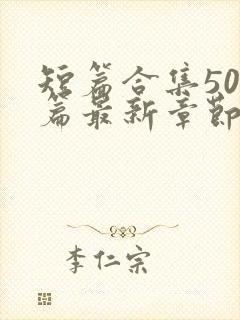 短篇合集50
篇最新章节
李仁宗